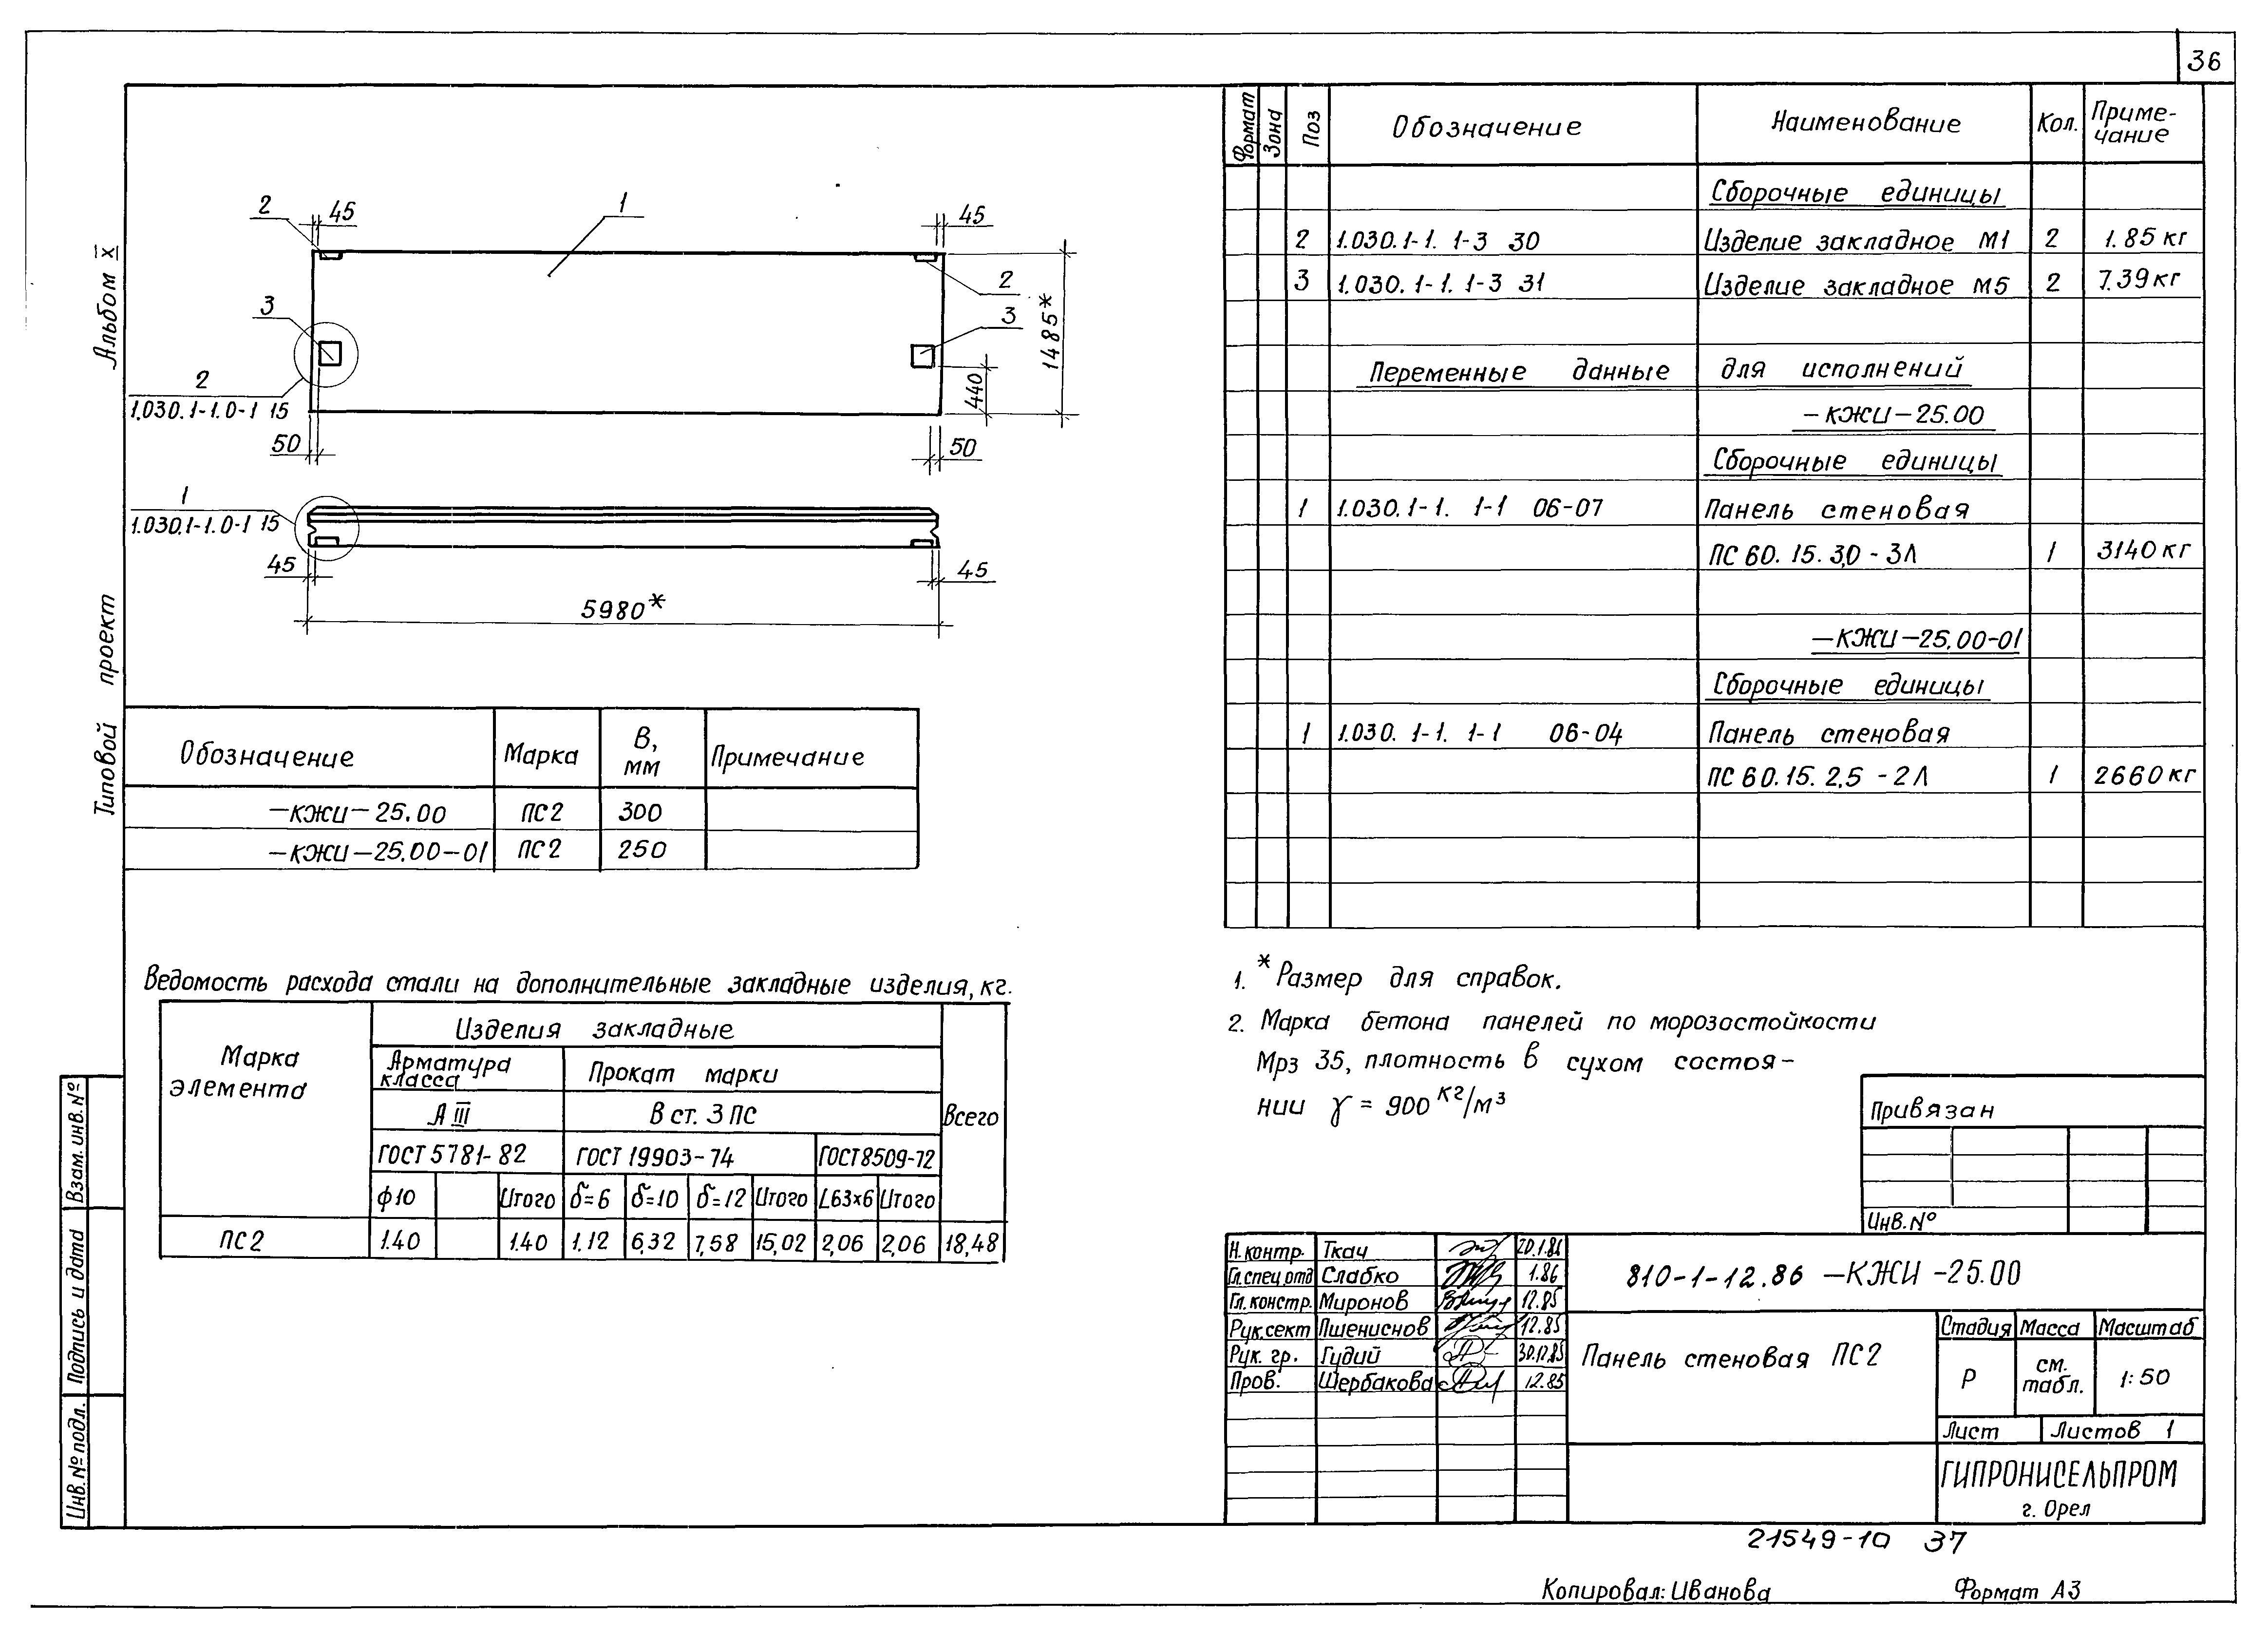 36
Альбом X
Типовой проект
2
45
1
45
2
3
3
2
1.030.1-1.0-1 15
1485*
440
50
50
1
1.030.1-1.0-1 15
45
45
5980*
Обозначение Марка В, мм Примечание
—КЖИ—25.00 ПС2 300
—КЖИ—25.00—01 ПС2 250
Ведомость расхода стали на дополнительные закладные изделия, кг.
Марка элемента Изделия закладные Всего
Арматура класса Прокат марки
А III В ст. 3 ПС
ГОСТ 5781-82 ГОСТ 19903-74 ГОСТ 8509-72
ф10 Итого δ=6 δ=10 δ=12 Итого L63x6 Итого
ПС2 1.40 1.40 1.12 6,32 7,58 15,02 2,06 2,06 18,48
Формат Зона Поз Обозначение Наименование Кол. Приме-
чание
Сборочные единицы
2 1.030.1-1. 1-3 30 Изделие закладное М1 2 1.85 кг
3 1.030.1-1. 1-3 31 Изделие закладное М5 2 7.39 кг
Переменные данные для исполнений
—КЖИ—25.00
Сборочные единицы
1 1.030.1-1. 1-1 06-07 Панель стеновая
ПС 60.15.3,0-3Л 1 3140 кг
—КЖИ—25.00-01
Сборочные единицы
1 1.030.1-1. 1-1 06-04 Панель стеновая
ПС 60.15.2,5-2Л 1 2660 кг
1. * Размер для справок.
2. Марка бетона панелей по морозостойкости
Мрз 35, плотность в сухом состоя-
нии γ = 900 кг/м³
Привязан
Инв. №
Н. контр. Ткач 20.1.86
Гл. спец. отд Слабко 1.86
Гл. констр. Миронов 12.85
Рук. сект Пшениснов 12.85
Рук. гр. Гудий 30.12.85
Пров. Щербакова 12.85
810-1-12.86 —КЖИ —25.00
Панель стеновая ПС2
Стадия Масса Масштаб
Р см. табл. 1:50
Лист Листов 1
ГИПРОНИСЕЛЬПРОМ
г. Орел
Взам. инв. №
Подпись и дата
Инв. № подл.
21549-10 37
Копировал: Иванова Формат А3